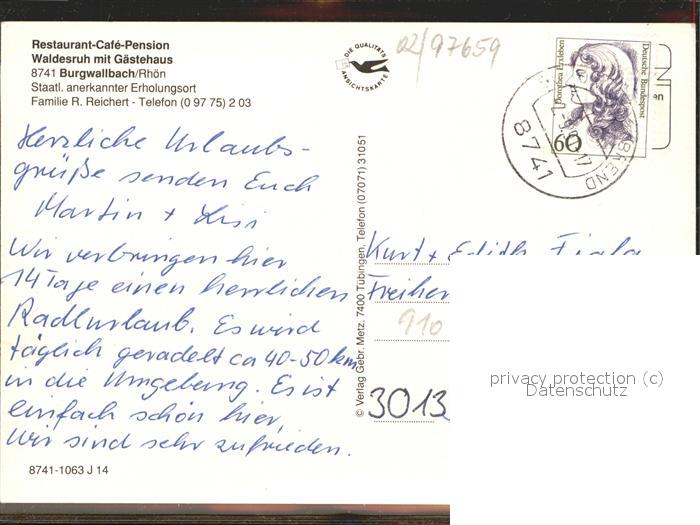 Restaurant-Café-Pension
Waldesruh mit Gästehaus
8741 Burgwallbach/Rhön
Staatl. anerkannter Erholungsort
Familie R. Reichert - Telefon (0 97 75) 2 03
Herzliche Urlaubs-
grüße senden Euch
Martin + Lisi
Wir verbringen hier
14 Tage einen herrlichen
Radlurlaub. Es wird
täglich geradelt ca 40-50 km
in die Umgebung. Es ist
einfach schön hier,
Wir sind sehr zufrieden.
8741-1063 J 14
DIE QUALITÄTS
ANSICHTSKARTE
© Verlag Gebr. Metz, 7400 Tübingen, Telefon (07071) 31051
02/97659
Dorothea Erxleben
Deutsche Bundespost
60
8741
Kurt + Edith
Freiher
910
3013
privacy protection (c)
Datenschutz